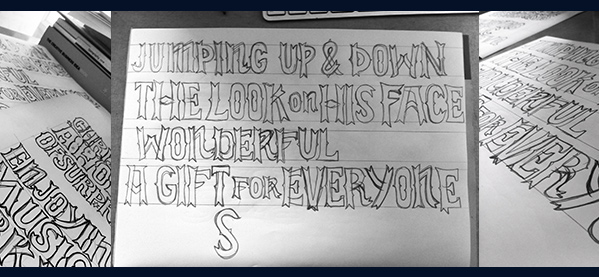 JUMPING UP & DOWN
THE LOOK on HIS FACE
WONDERFUL
A GIFT FOR EVERYONE
S
ENJOYIN
MUSIC
WONDERFUL
EVERY